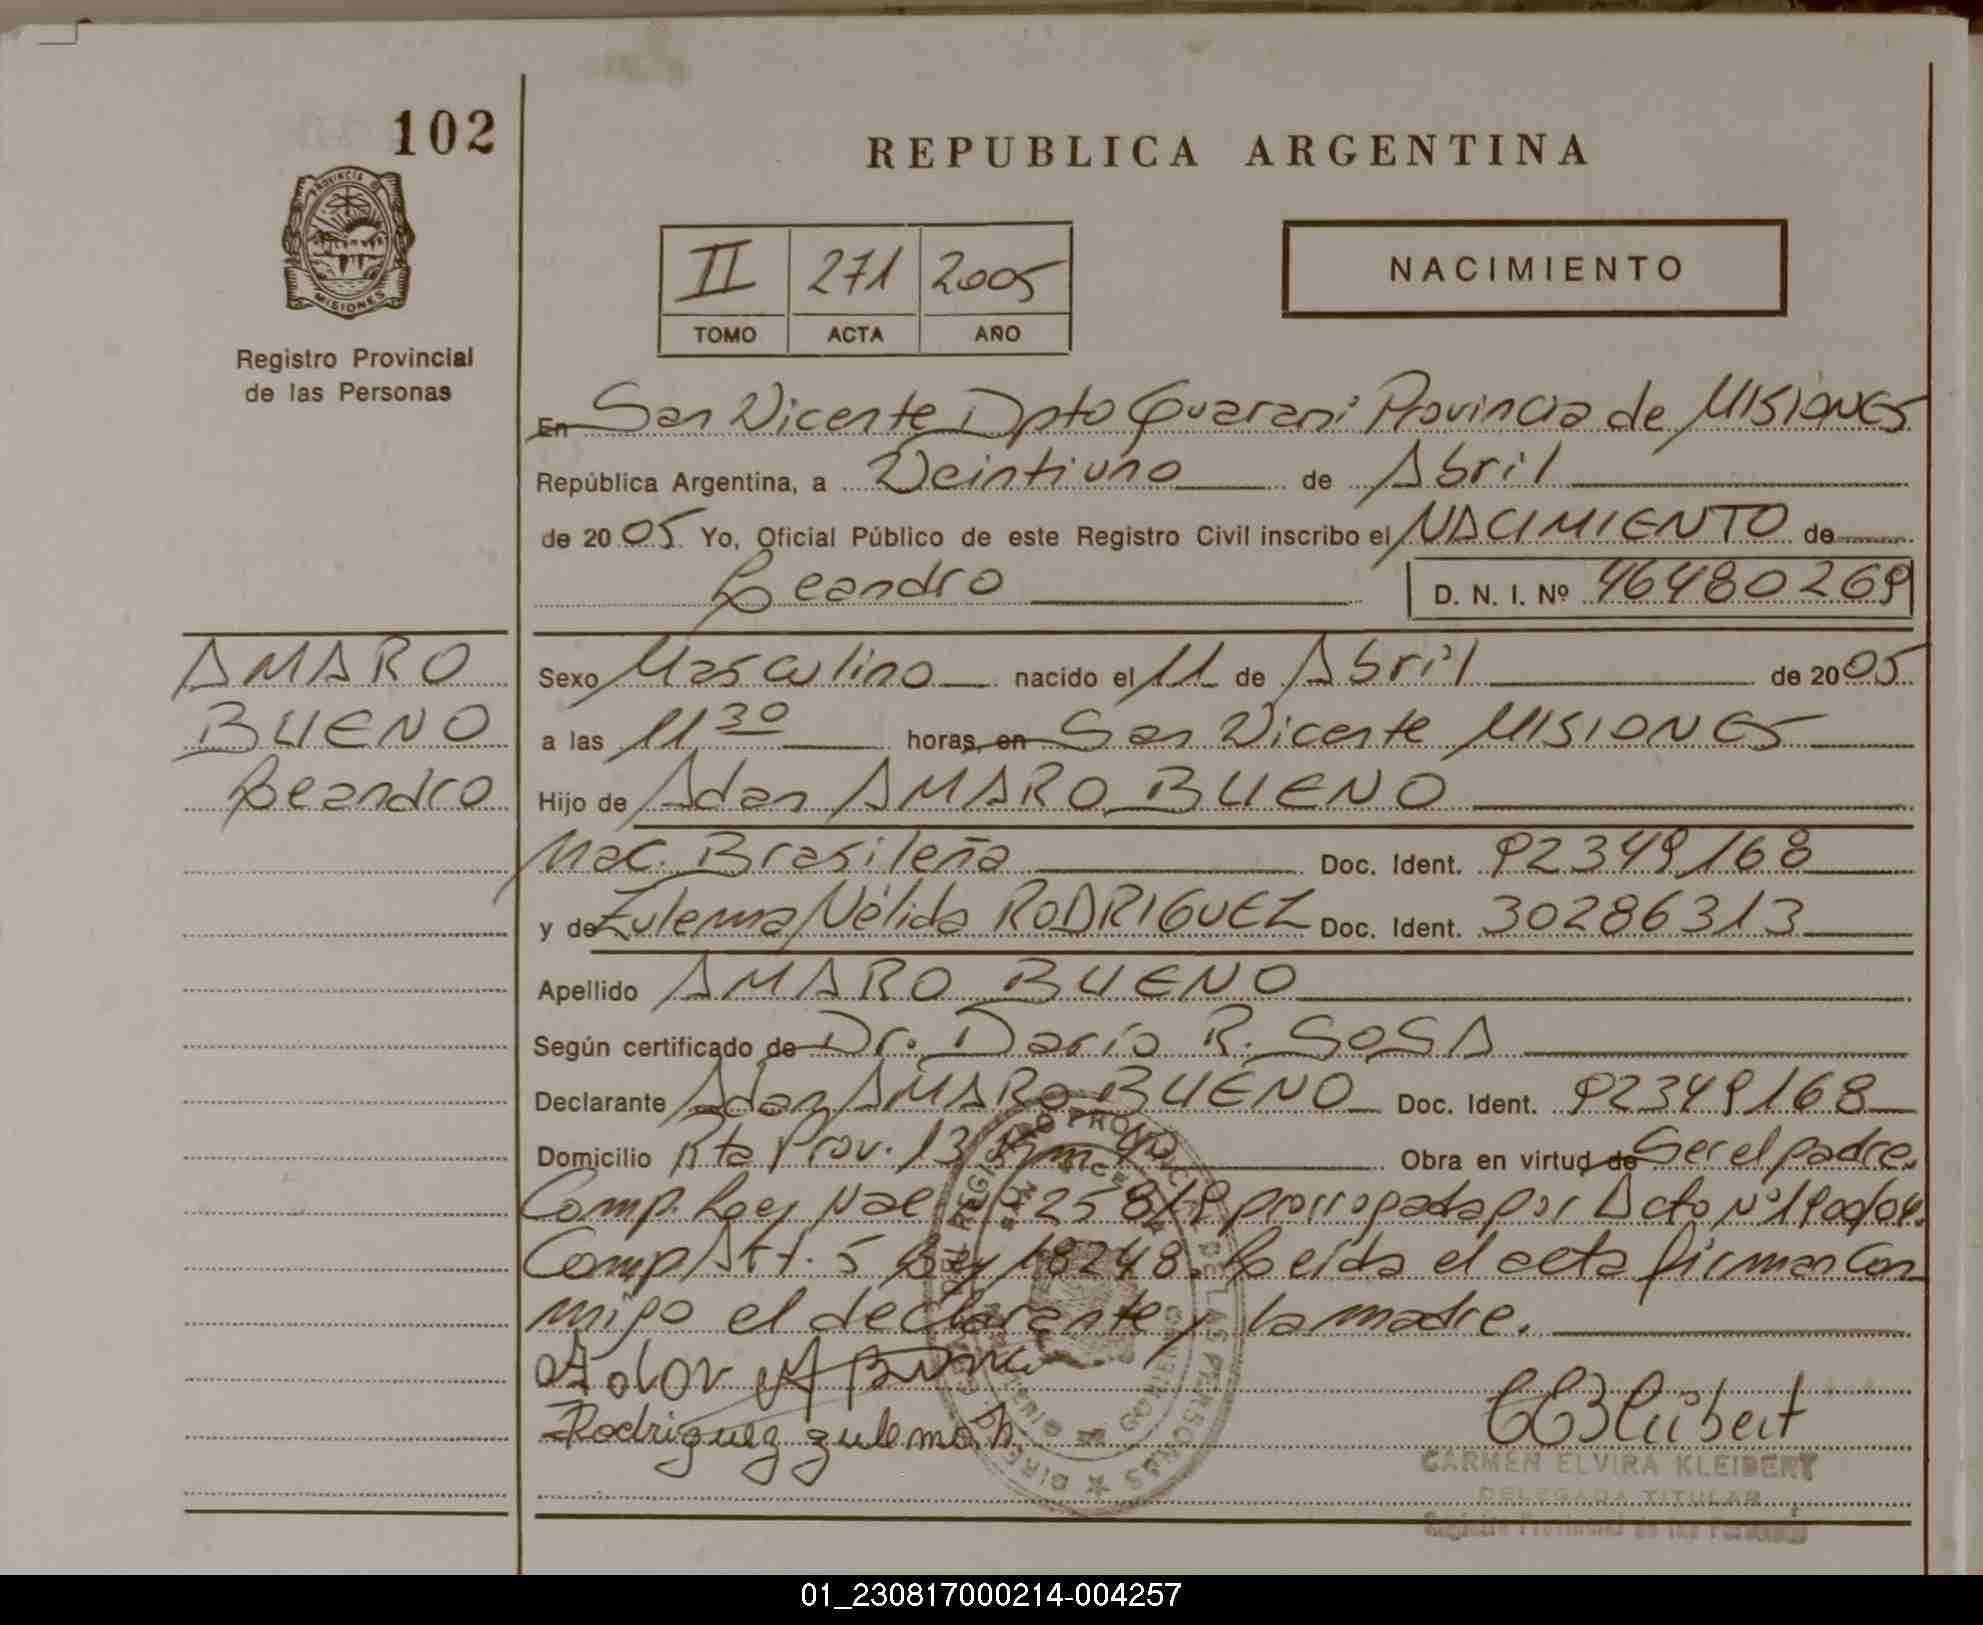 102
REPUBLICA ARGENTINA
PROVINCIA DE
MISIONES
Registro Provincial
de las Personas
II 271 2005
TOMO ACTA AÑO
NACIMIENTO
En San Vicente Dpto Guarani Provincia de MISIONES
República Argentina, a Veintiuno de Abril
de 2005 Yo, Oficial Público de este Registro Civil inscribo el NACIMIENTO de
Leandro D. N. I. Nº 46480269
AMARO
BUENO
Leandro
Sexo Masculino nacido el 11 de Abril de 2005
a las 11 30 horas, en San Vicente MISIONES
Hijo de Adan AMARO BUENO
Nac. Brasileña Doc. Ident. 92349168
y de Zulema Nélida RODRIGUEZ Doc. Ident. 30286313
Apellido AMARO BUENO
Según certificado de Dr. Darío R. SOSA
Declarante Adan AMARO BUENO Doc. Ident. 92349168
Domicilio Rta Prov. 13 Km Obra en virtud de Ser el padre.
Comp. Ley Nac prorrogada por Dcto Nº 1900/04.
Comp Art. 5 Ley 18248. Leída el acta firman Con
migo el declarante y la madre.
Rodriguez zulema N.
CARMEN ELVIRA KLEIBERT
DELEGADA TITULAR
Registro Provincial de las Personas
01_230817000214-004257